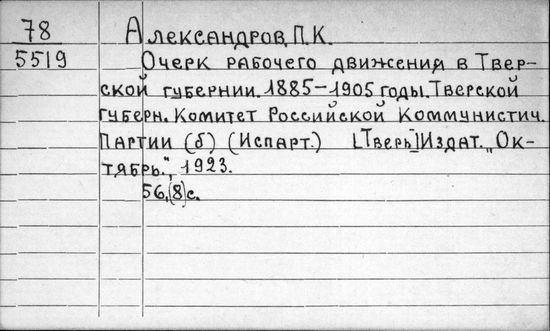 78 Александров, П.К.
5519 Очерк рабочего движения в Твер-
ской губернии. 1885-1905 годы. Тверской
губерн. Комитет Российской Коммунистич.
Партии (б) (Испарт.) [Тверь] Издат. „Ок-
тябрь.", 1923.
56,(8)с.